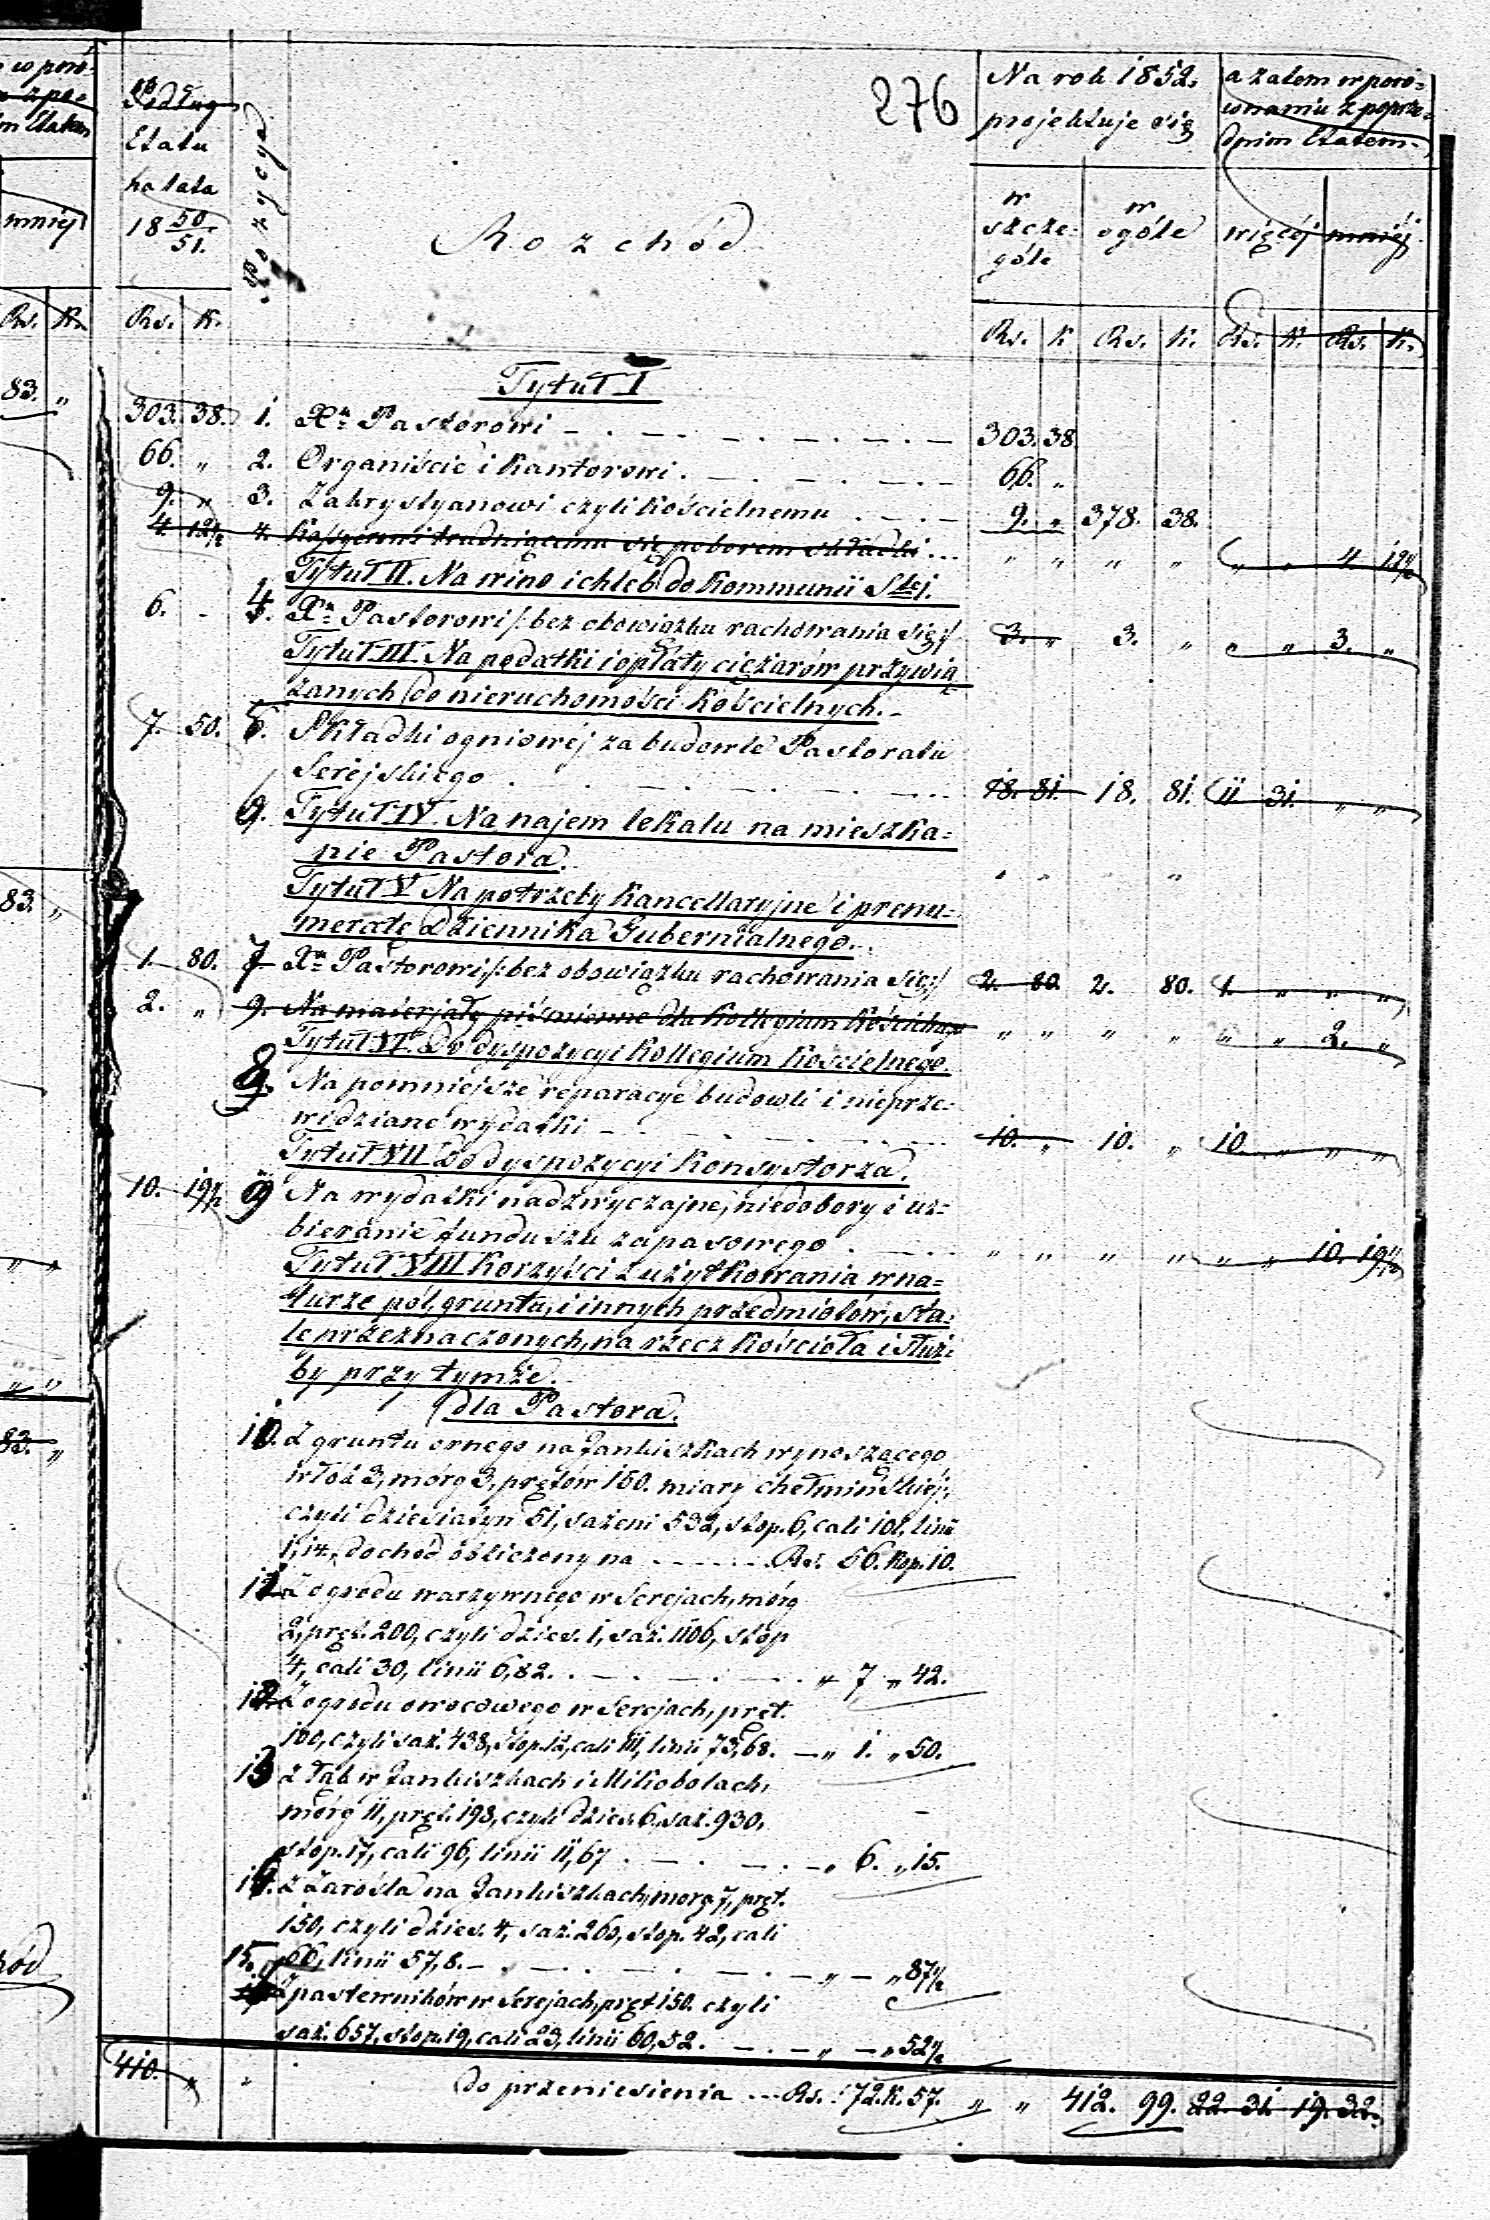 276
Podług Etatu na lata 18 50/51.
Pozycya
Rozchód
Na rok 1852. projektuje się
w szczególe
w ogóle
a zatem w porównaniu z poprzednim Etatem.
więcéj mniéj
Rs. K. Rs. K Rs. K. Rs. K. Rs. K.
Tytuł I
303. 38. 1. Xu Pastorowi 303. 38.
66. „ 2. Organiście i Kantorowi. 66. „
9. „ 3. Zakrystyanowi czyli Kościelnemu 9. „ 378. 38.
4. 12½ 4. Kassyerowi trudniącemu się poborem składki „ „ „ „ „ „ 4. 12½
Tytuł II. Na wino i chleb do Kommunii Stéj.
6. - 4. Xu Pastorowi /: bez obowiązku rachowania się :/ 3. „ 3. „ „ „ 3. „
Tytuł III. Na podatki i opłaty ciężarów przywią-
zanych do nieruchomości Kościelnych.
7. 50. 5. Składki ogniowéj za budowle Pastoratu
Serejskiego 18. 81. 18. 81. 11 31. „ „
6. Tytuł IV. Na najem lokalu na mieszka-
nie Pastora.
Tytuł V Na potrzeby Kancellaryjne i prenu-
meratę Dziennika Gubernialnego.
1. 80. 7 Xu Pastorowi /: bez obowiązku rachowania się :/ 2. 80. 2. 80. 1. „ „ „
2. „ 9. Na materjały piśmienne dla Kollegium Kościelnego „ „ „ „ „ „ 2. „
Tytuł VI. Do dyspozycyi Kollegium Kościelnego.
8. Na pomniejsze reparacye budowli i nieprze-
widziane wydatki 10. „ 10. „ 10. „ „ „
Tytuł VII Do dyspozycyi Konsystorza.
10. 19½ 9 Na wydatki nadzwyczajne, niedobory i uz-
bieranie funduszu zapasowego „ „ „ „ „ „ 10. 19½
Tytuł VIII Korzyści z użytkowania w na-
turze pól, gruntu, i innych przedmiotów, sta-
le przeznaczonych, na rzecz Kościoła i służ-
by przy tymże.
dla Pastora.
10. Z gruntu ornego na Jankiszkach wynoszącego
włók 3, mórg 3, prętów 150. miary chełmińskiéj,
czyli dziesiatyn 51, sażeni 532, stop. 6, cali 101, linii
1,14, dochód obliczony na Rs. 56. Kop. 10.
11 Z ogrodu warzywnego w Serejach, mórg
2, pręt. 200, czyli dzies. 1, saż. 1106, stop
4, cali 30, linii 6,82. „ 7 „ 42.
12 Z ogrodu owocowego w Serejach, pręt.
100, czyli saż. 438, stop. 12, cali 111, linii 73,68. „ 1. „ 50.
13 Z łąk w Jankiszkach i Mikobolach,
mórg 11, pręt. 198, czyli dzies. 6, saż. 930,
stop. 17, cali 96, linii 11,67 „ 6. „ 15.
14. Z Zarośla na Jankiszkach, morg 7, pręt.
150, czyli dzies. 4, saż. 260, stop. 42, cali
66, linii 57,8. „ — „ 87½
15. Z pastewników w Serejach, pręt 150. czyli
saż. 657, stop. 19, cali 23, linii 60,52. „ — „ 52½
410. „ do przeniesienia Rs. 72. K. 57. „ „ 412. 99. 22. 31. 19. 32.